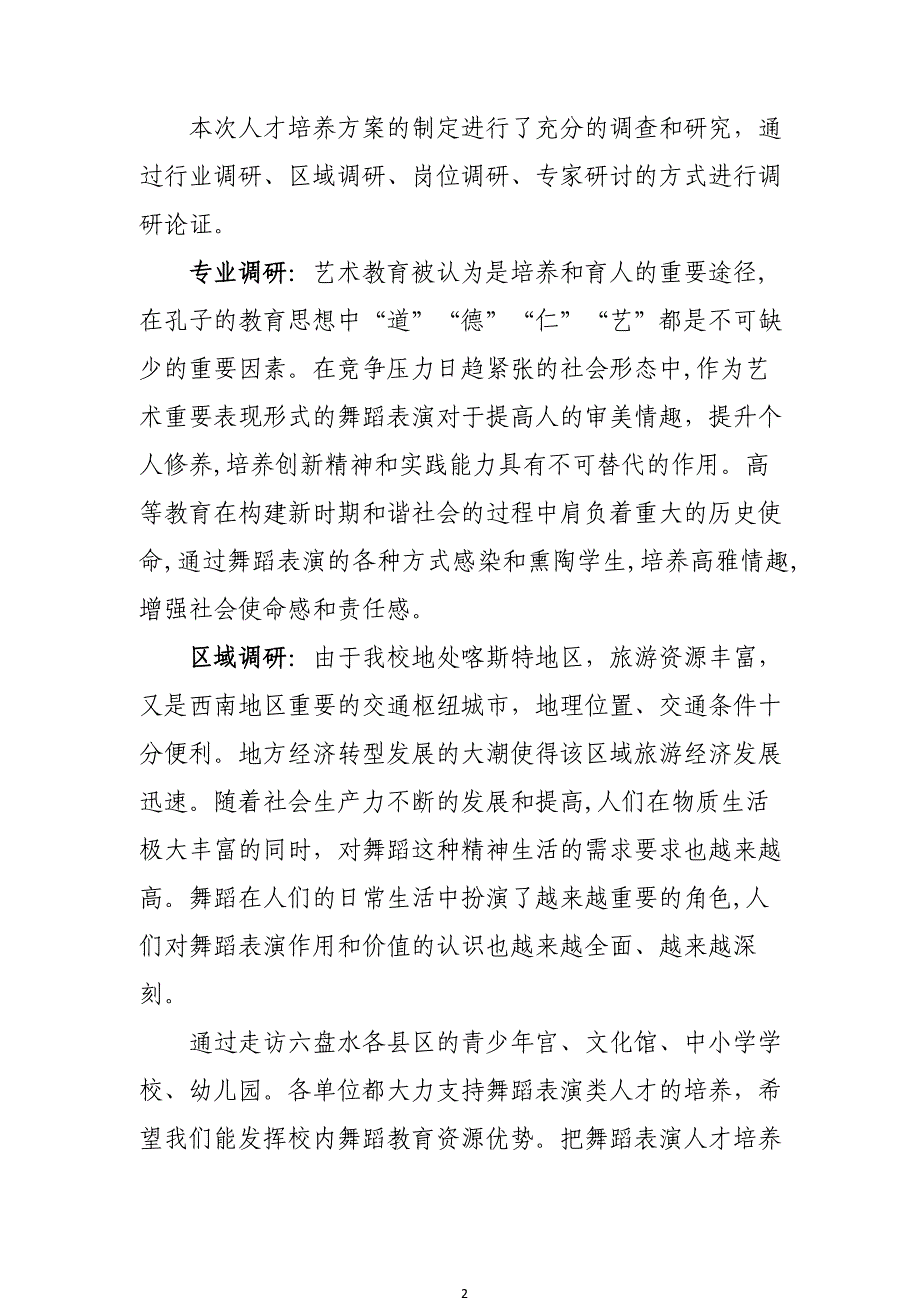 本次人才培养方案的制定进行了充分的调查和研究，通
过行业调研、区域调研、岗位调研、专家研讨的方式进行调
研论证。
专业调研：艺术教育被认为是培养和育人的重要途径,
在孔子的教育思想中“道”“德”“仁”“艺”都是不可缺
少的重要因素。在竞争压力日趋紧张的社会形态中,作为艺
术重要表现形式的舞蹈表演对于提高人的审美情趣，提升个
人修养,培养创新精神和实践能力具有不可替代的作用。高
等教育在构建新时期和谐社会的过程中肩负着重大的历史使
命,通过舞蹈表演的各种方式感染和熏陶学生,培养高雅情趣,
增强社会使命感和责任感。
区域调研：由于我校地处喀斯特地区，旅游资源丰富，
又是西南地区重要的交通枢纽城市，地理位置、交通条件十
分便利。地方经济转型发展的大潮使得该区域旅游经济发展
迅速。随着社会生产力不断的发展和提高,人们在物质生活
极大丰富的同时，对舞蹈这种精神生活的需求要求也越来越
高。舞蹈在人们的日常生活中扮演了越来越重要的角色,人
们对舞蹈表演作用和价值的认识也越来越全面、越来越深
刻。
通过走访六盘水各县区的青少年宫、文化馆、中小学学
校、幼儿园。各单位都大力支持舞蹈表演类人才的培养，希
望我们能发挥校内舞蹈教育资源优势。把舞蹈表演人才培养
2